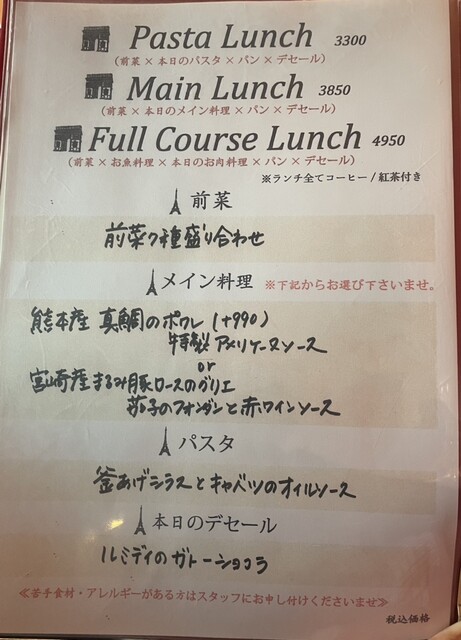 Pasta Lunch 3300
(前菜×本日のパスタ×パン×デセール)
Main Lunch 3850
(前菜×本日のメイン料理×パン×デセール)
Full Course Lunch 4950
(前菜×お魚料理×本日のお肉料理×パン×デセール)
※ランチ全てコーヒー/紅茶付き
前菜
前菜7種盛り合わせ
メイン料理 ※下記からお選び下さいませ。
熊本産 真鯛のポワレ (+990)
特製 アメリケーヌソース
or
宮崎産まるみ豚ロースのグリエ
茄子のフォンダンと赤ワインソース
パスタ
釜あげシラスとキャベツのオイルソース
本日のデセール
ルミディのガトーショコラ
≪苦手食材・アレルギーがある方はスタッフにお申し付けくださいませ≫
税込価格